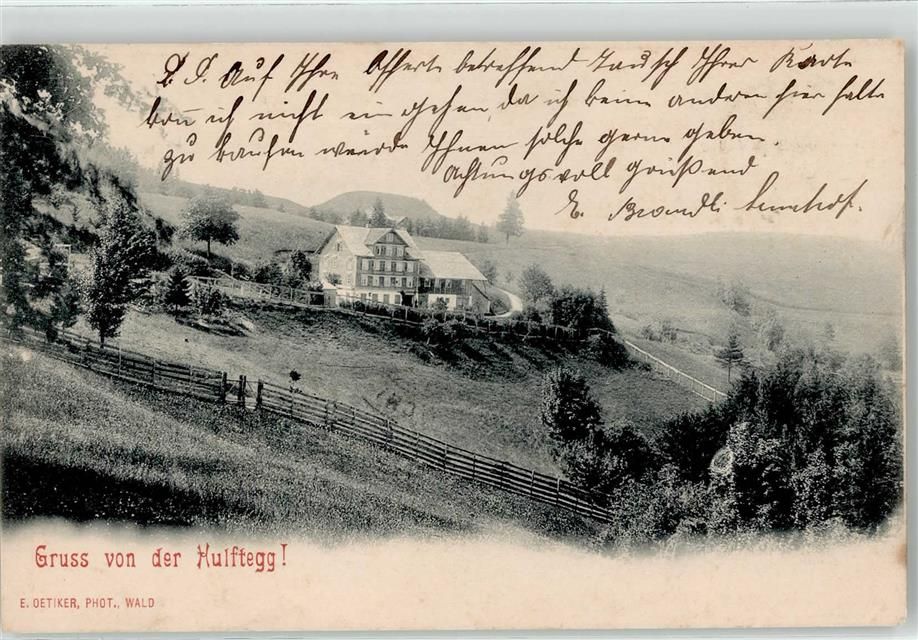 P. P. Auf Ihre Offerte betreffend Tausch Ihrer Karte
kann ich nicht eingehen, da ich keine andern hier halte
zu kaufen würde Ihnen solche gerne geben.
Achtungsvoll grüßend
E. Brändli
Gruss von der Hulftegg!
E. OETIKER, PHOT., WALD